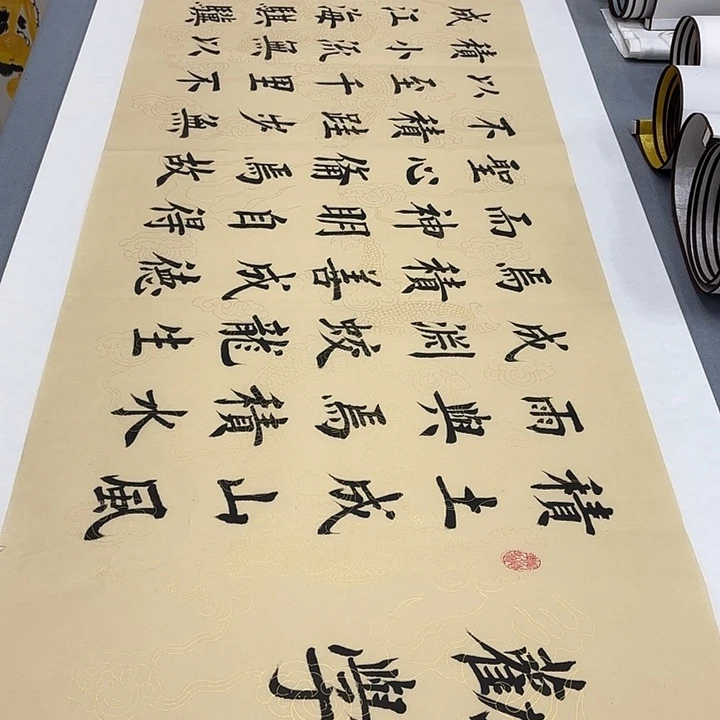 勸學
積土成山風
雨興焉積水
成淵蛟龍生
焉積善成德
而神明自得
聖心備焉故
不積跬步無
以至千里不
積小流無以
成江海騏驥